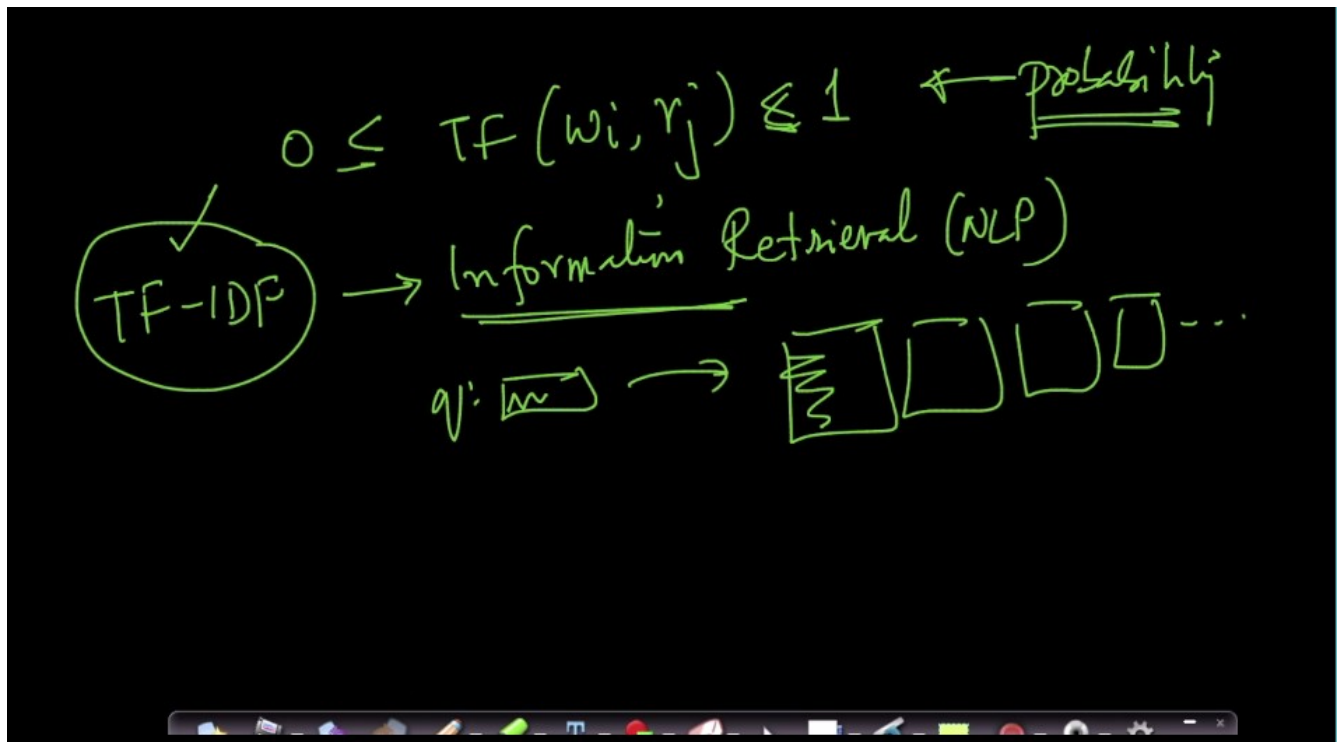 0 ≤ TF(wi, rj) ≤ 1 ← probability
TF-IDF → Information Retrieval (NLP)
q: → ...